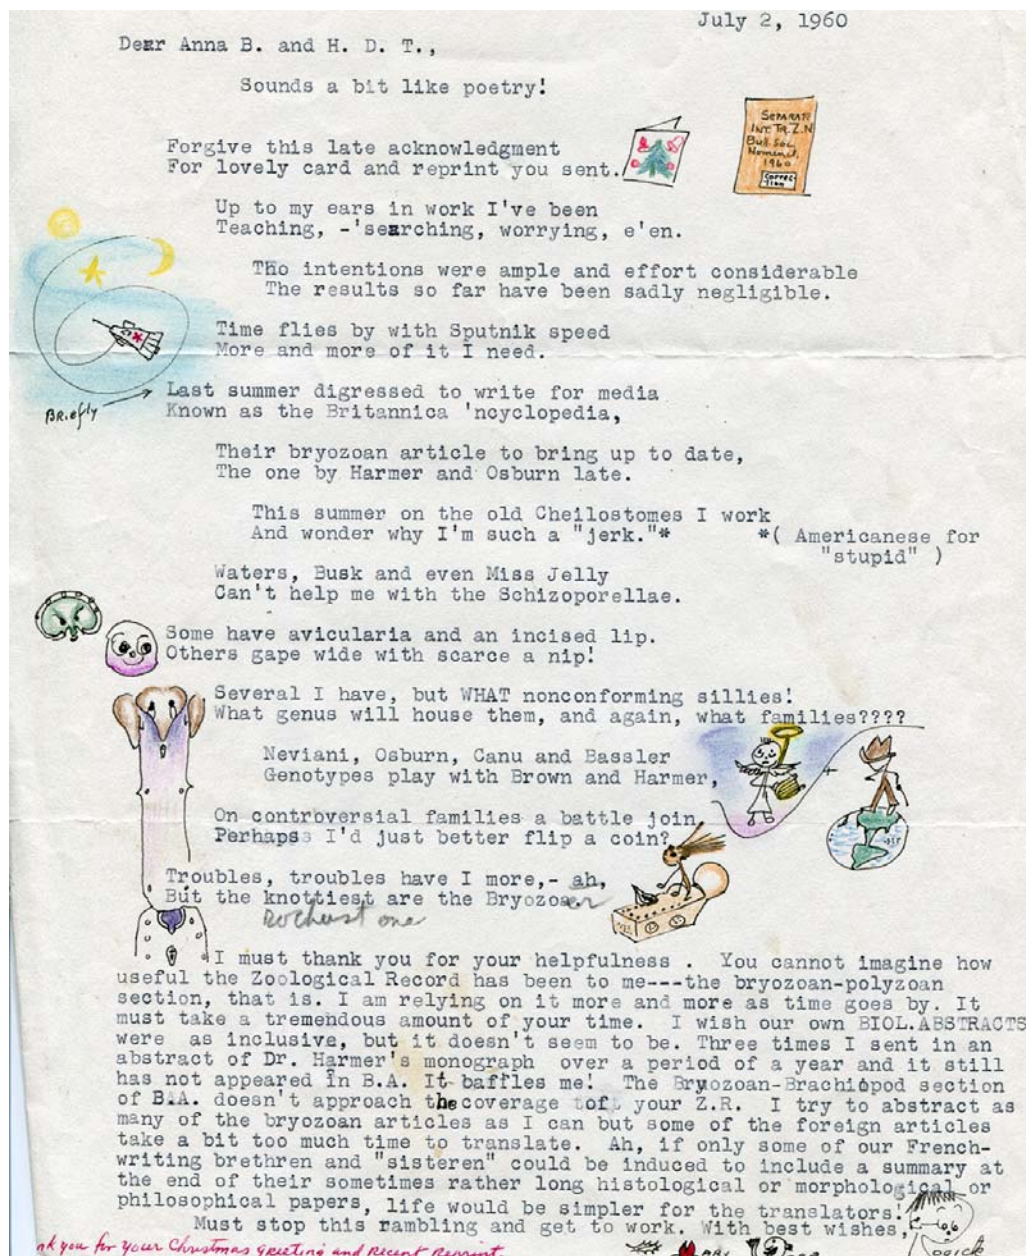 July 2, 1960
Dear Anna B. and H. D. T.,
Sounds a bit like poetry!
SEPARATE
INT. TR. Z. N
Bull. Soc
Nomencl.
1960
CORREC-
TION
Forgive this late acknowledgment
For lovely card and reprint you sent.
Up to my ears in work I've been
Teaching, -'searching, worrying, e'en.
Tho intentions were ample and effort considerable
The results so far have been sadly negligible.
Time flies by with Sputnik speed
More and more of it I need.
BRiefly
Last summer digressed to write for media
Known as the Britannica 'ncyclopedia,
Their bryozoan article to bring up to date,
The one by Harmer and Osburn late.
This summer on the old Cheilostomes I work
And wonder why I'm such a "jerk."* *( Americanese for
"stupid" )
Waters, Busk and even Miss Jelly
Can't help me with the Schizoporellae.
Some have avicularia and an incised lip.
Others gape wide with scarce a nip!
Several I have, but WHAT nonconforming sillies!
What genus will house them, and again, what families????
Neviani, Osburn, Canu and Bassler
Genotypes play with Brown and Harmer,
On controversial families a battle join
Perhaps I'd just better flip a coin?
Troubles, troubles have I more,- ah,
But the knottiest are the Bryozoer
I must thank you for your helpfulness . You cannot imagine how
useful the Zoological Record has been to me---the bryozoan-polyzoan
section, that is. I am relying on it more and more as time goes by. It
must take a tremendous amount of your time. I wish our own BIOL.ABSTRACTS
were as inclusive, but it doesn't seem to be. Three times I sent in an
abstract of Dr. Harmer's monograph over a period of a year and it still
has not appeared in B.A. It baffles me! The Bryozoan-Brachiopod section
of B.A. doesn't approach the coverage of your Z.R. I try to abstract as
many of the bryozoan articles as I can but some of the foreign articles
take a bit too much time to translate. Ah, if only some of our French-
writing brethren and "sisteren" could be induced to include a summary at
the end of their sometimes rather long histological or morphological or
philosophical papers, life would be simpler for the translators!
Must stop this rambling and get to work. With best wishes,
nk you for your Christmas Greeting and Recent Reprint